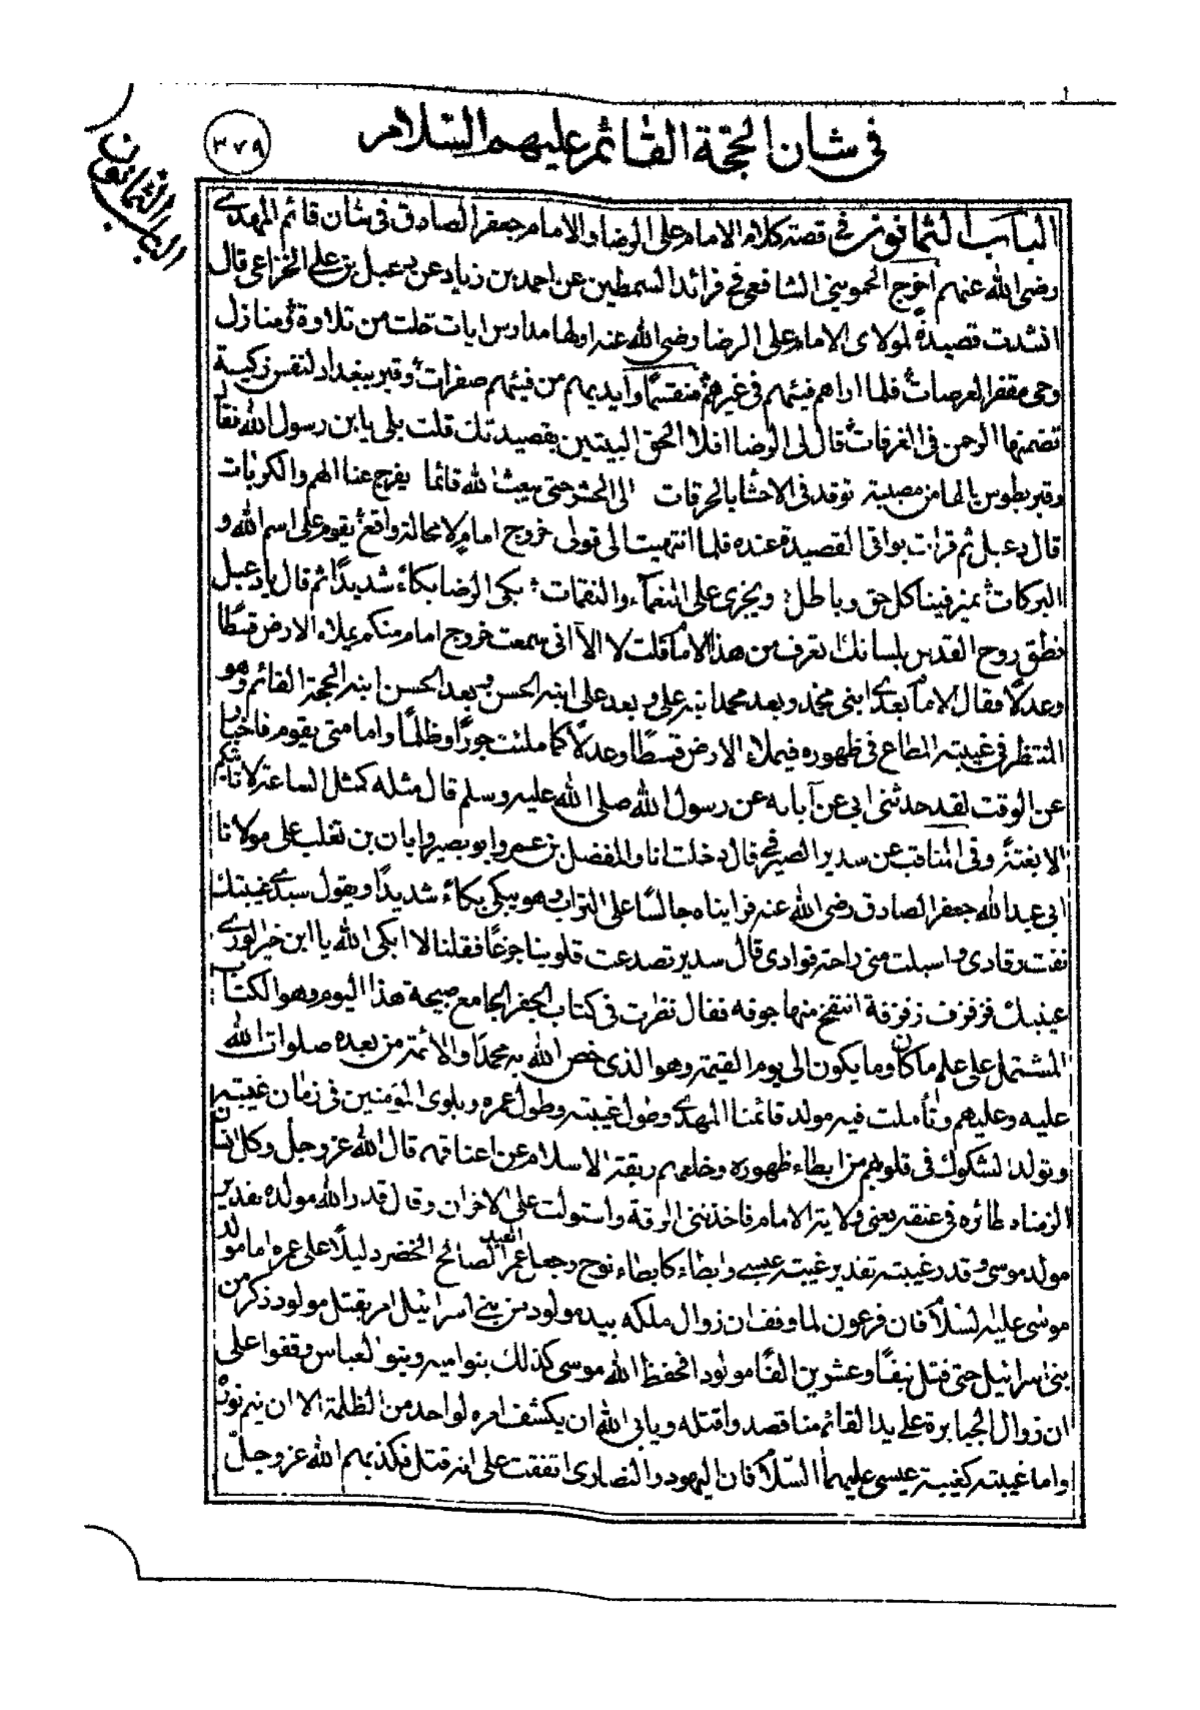 في شان الحجة القائم عليهم السلام
٣٧٩
الباب الثمانون
الباب الثمانون في قصة كلام الامام على الرضا والامام جعفر الصادق في شان قائم المهدي
رضى الله عنهم أخرج الحمويني الشافعي في فرائد السمطين عن احمد بن زياد عن دعبل بن علي الخزاعي قال
انشدت قصيدة لمولاى الامام على الرضا رضى الله عنه اولها مدارس ايات خلت من تلاوة ومنازل
وحى مقفر العرصات فلما اراهم فيئهم في غيرهم منقسمًا وايديهم من فيئهم صفرات وقبر ببغداد لنفس زكية
تضمنها الرحمن في الغرفات قال لى الرضا افلا الحق البيتين بقصيدتك قلت بلى يابن رسول الله فقال
وقبر بطوس يالها من مصيبة توقد في الاحشا بالحرقات الى الحشر حتى يبعث الله قائما يفرج عنا الهم والكربات
قال دعبل ثم قرات بواقى القصيدة عنده فلما انتهيت الى قولى خروج امام لا محالة واقع يقوم على اسم الله و
البركات يميز فينا كل حق وباطل ويجزى على النعماء والنقمات بكى الرضا بكاءً شديدًا ثم قال يا دعبل
نطق روح القدس بلسانك اتعرف من هذا الامام قلت لا الا انى سمعت خروج امام منكم يملاء الارض قسطًا
وعدلًا فقال الامام بعدي ابنى محمد وبعد محمد ابنه على وبعد على ابنه الحسن وبعد الحسن ابنه الحجة القائم وهو
المنتظر في غيبته المطاع في ظهوره فيملاء الارض قسطًا وعدلًا كما ملئت جورًا وظلمًا واما متى يقوم فاخبار
عن الوقت لقد حدثنى ابى عن آبائه عن رسول الله صلى الله عليه وسلم قال مثله كمثل الساعة لا تاتيكم
الا بغتة وفى المناقب عن سدير الصيرفي قال دخلت انا والمفضل بن عمر وابو بصير وابان بن تغلب على مولانا
ابى عبد الله جعفر الصادق رضى الله عنه فرايناه جالسًا على التراب وهو يبكى بكاءً شديدًا ويقول سيدي غيبتك
نفت رقادى واسبلت منى راحة فوادى قال سدير تصدعت قلوبنا جزعًا فقلنا لا ابكى الله يا ابن خير الورى
عينيك فزفر زفرة انتفخ منها جوفه فقال نظرت في كتاب الجفر الجامع صبيحة هذا اليوم وهو الكتاب
المشتمل على علم ما كان وما يكون الى يوم القيمة وهو الذى خص الله به محمدًا والائمة من بعده صلوات الله
عليه وعليهم وتأملت فيه مولد قائمنا المهدي وطول غيبته وطول عمره وبلوى المؤمنين في زمان غيبته
وتولد الشكوك في قلوبهم من ابطاء ظهوره وخلعهم ربقة الاسلام عن اعناقهم قال الله عز وجل وكل انسان
الزمناه طائره في عنقه يعنى ولاية الامام فاخذتنى الرقة واستولت على الاحزان وقال قدر الله مولده تقدير
مولد موسى وقدر غيبته تقدير غيبة عيسى وابطاء كابطاء نوح وجعل عمر العبد الصالح الخضر دليلًا على عمره اما مولد
موسى عليه السلام فان فرعون لما وقف ان زوال ملكه بيد مولود من بني اسرائيل امر بقتل مولود ذكر من
بنى اسرائيل حتى قتل نيفًا وعشرين الفًا مولود فحفظ الله موسى كذلك بنو اميه وبنو العباس وقفوا على
ان زوال الجبابرة على يد القائم منا قصدوا قتله ويابى الله ان يكشف امره لواحد من الظلمة الا ان يتم نوره
واما غيبته كغيبة عيسى عليهما السلام فان اليهود والنصارى اتفقت على انه قتل فكذبهم الله عز وجل